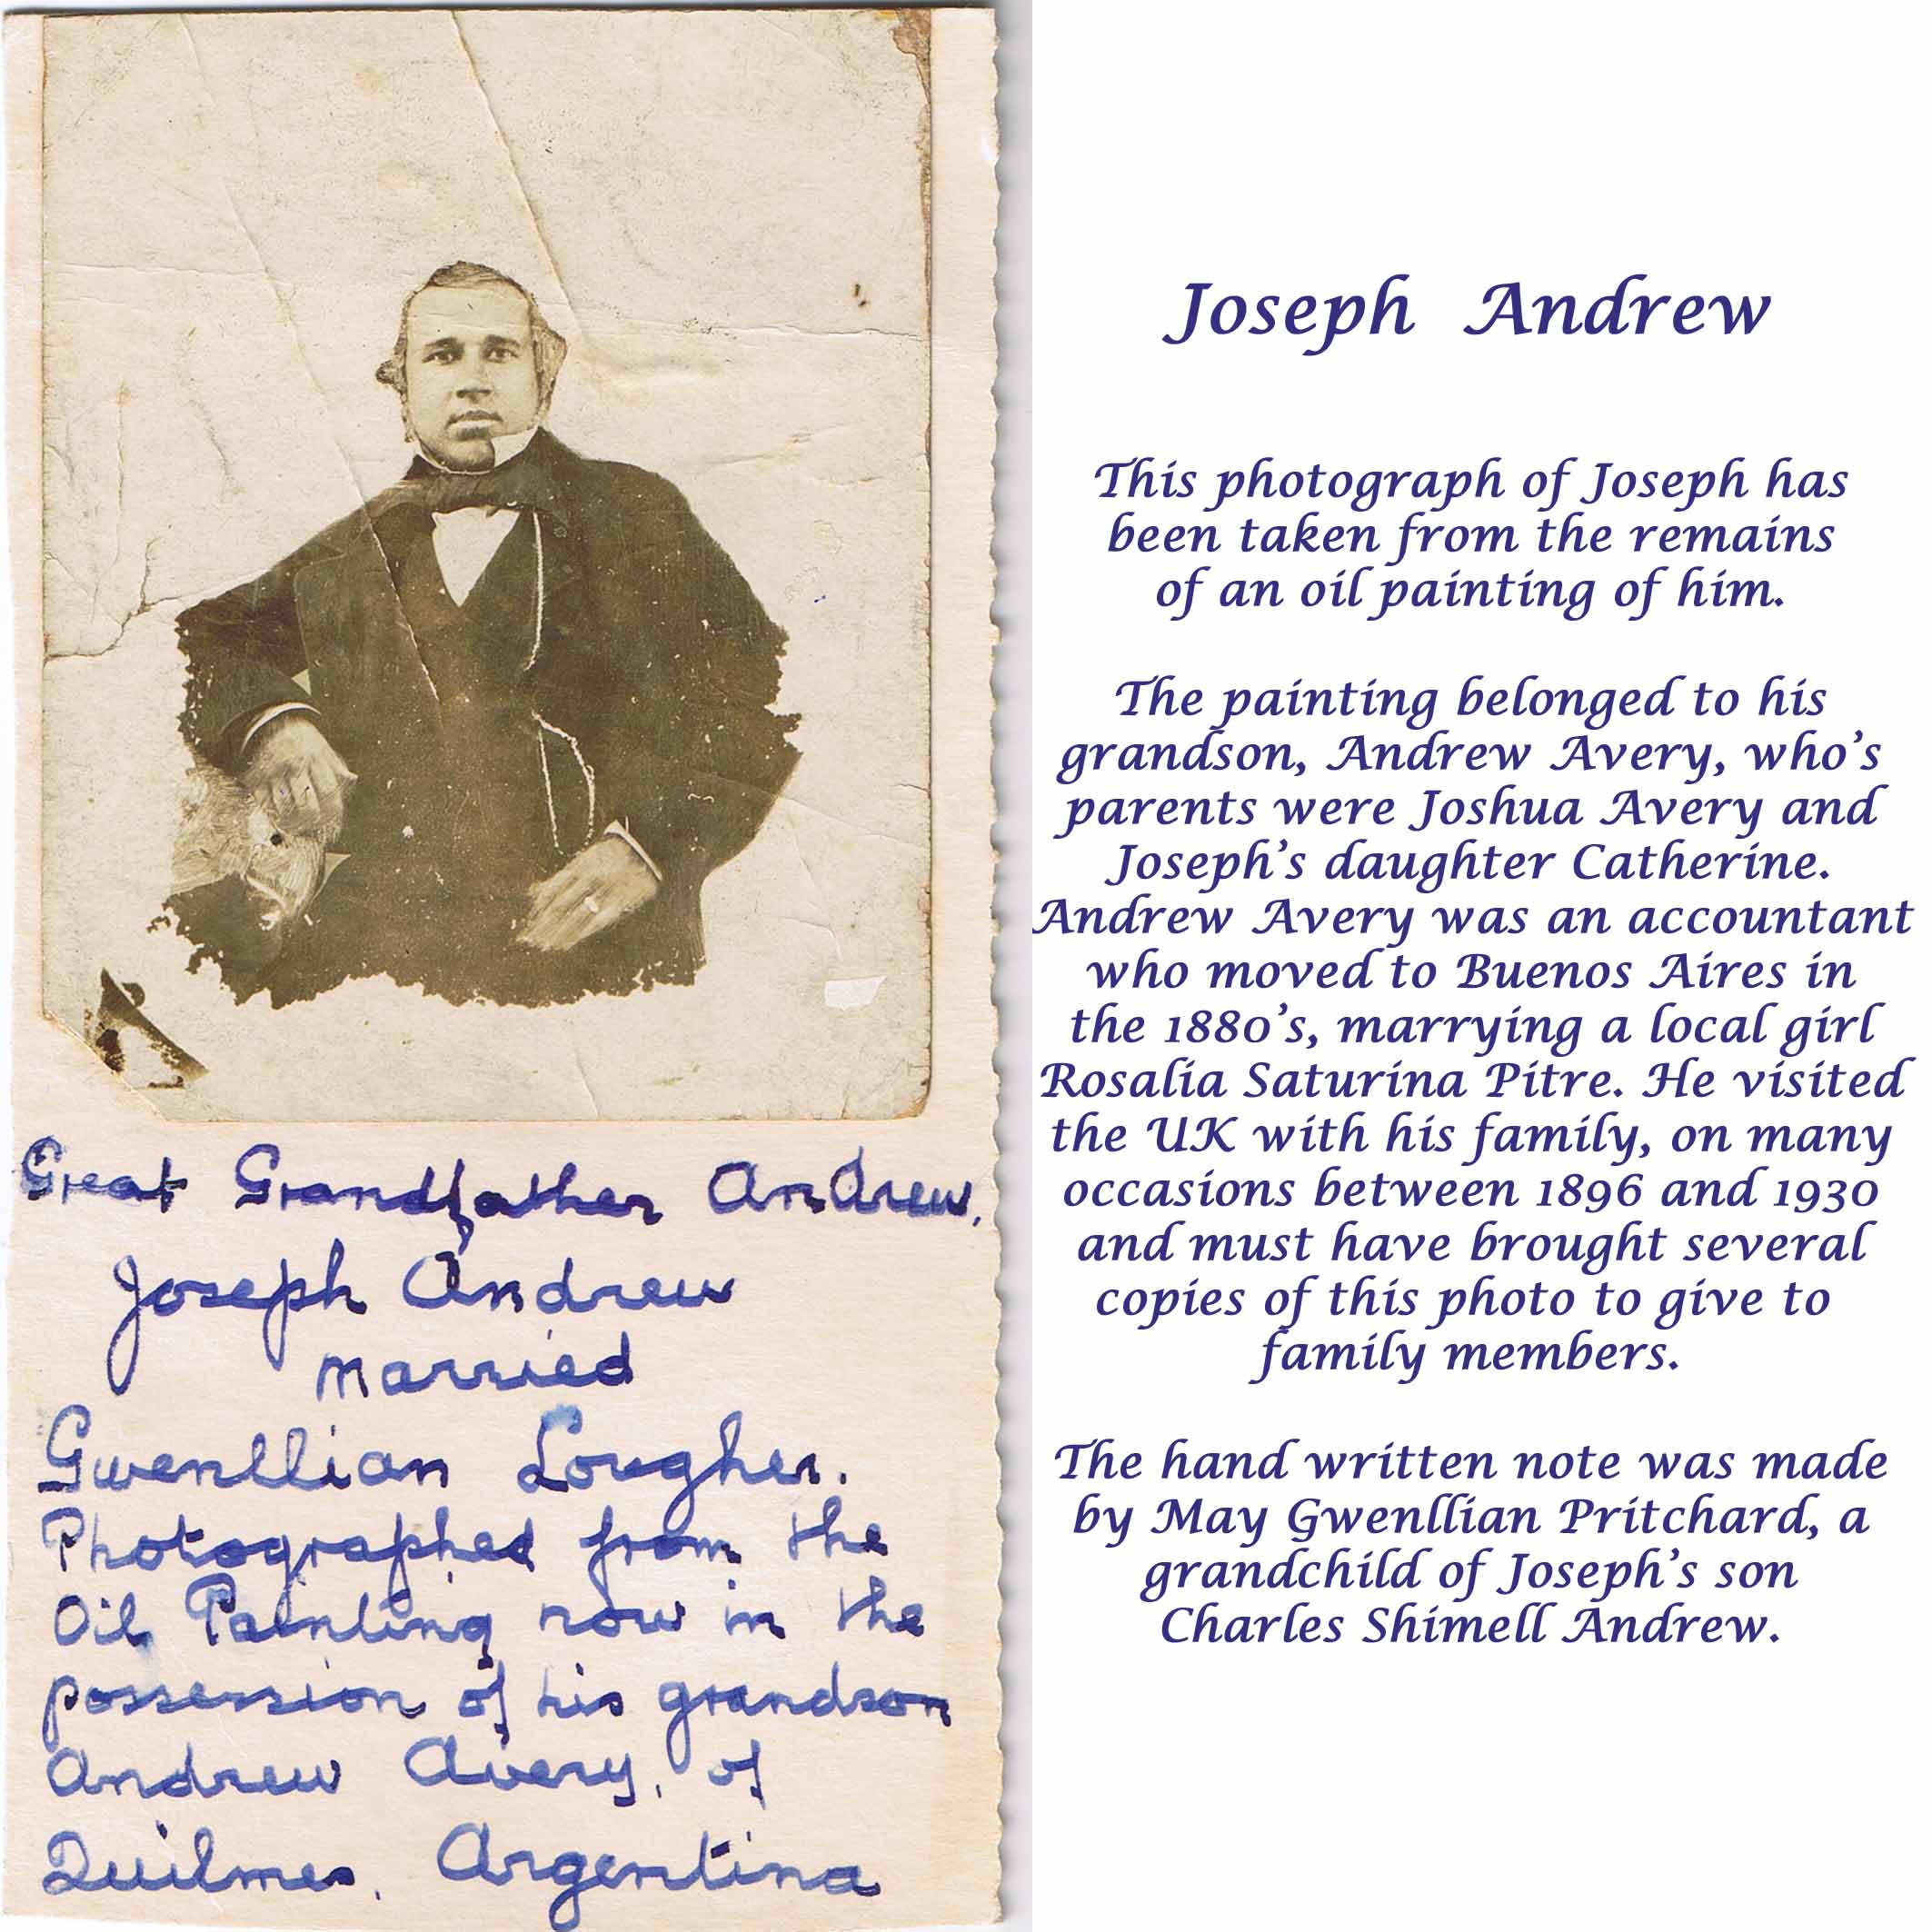 Great Grandfather Andrew.
Joseph Andrew
married
Gwenllian Lougher.
Photographed from the
Oil Painting now in the
possession of his grandson
Andrew Avery, of
Quilmes, Argentina
Joseph Andrew
This photograph of Joseph has
been taken from the remains
of an oil painting of him.
The painting belonged to his
grandson, Andrew Avery, who's
parents were Joshua Avery and
Joseph's daughter Catherine.
Andrew Avery was an accountant
who moved to Buenos Aires in
the 1880's, marrying a local girl
Rosalia Saturina Pitre. He visited
the UK with his family, on many
occasions between 1896 and 1930
and must have brought several
copies of this photo to give to
family members.
The hand written note was made
by May Gwenllian Pritchard, a
grandchild of Joseph's son
Charles Shimell Andrew.